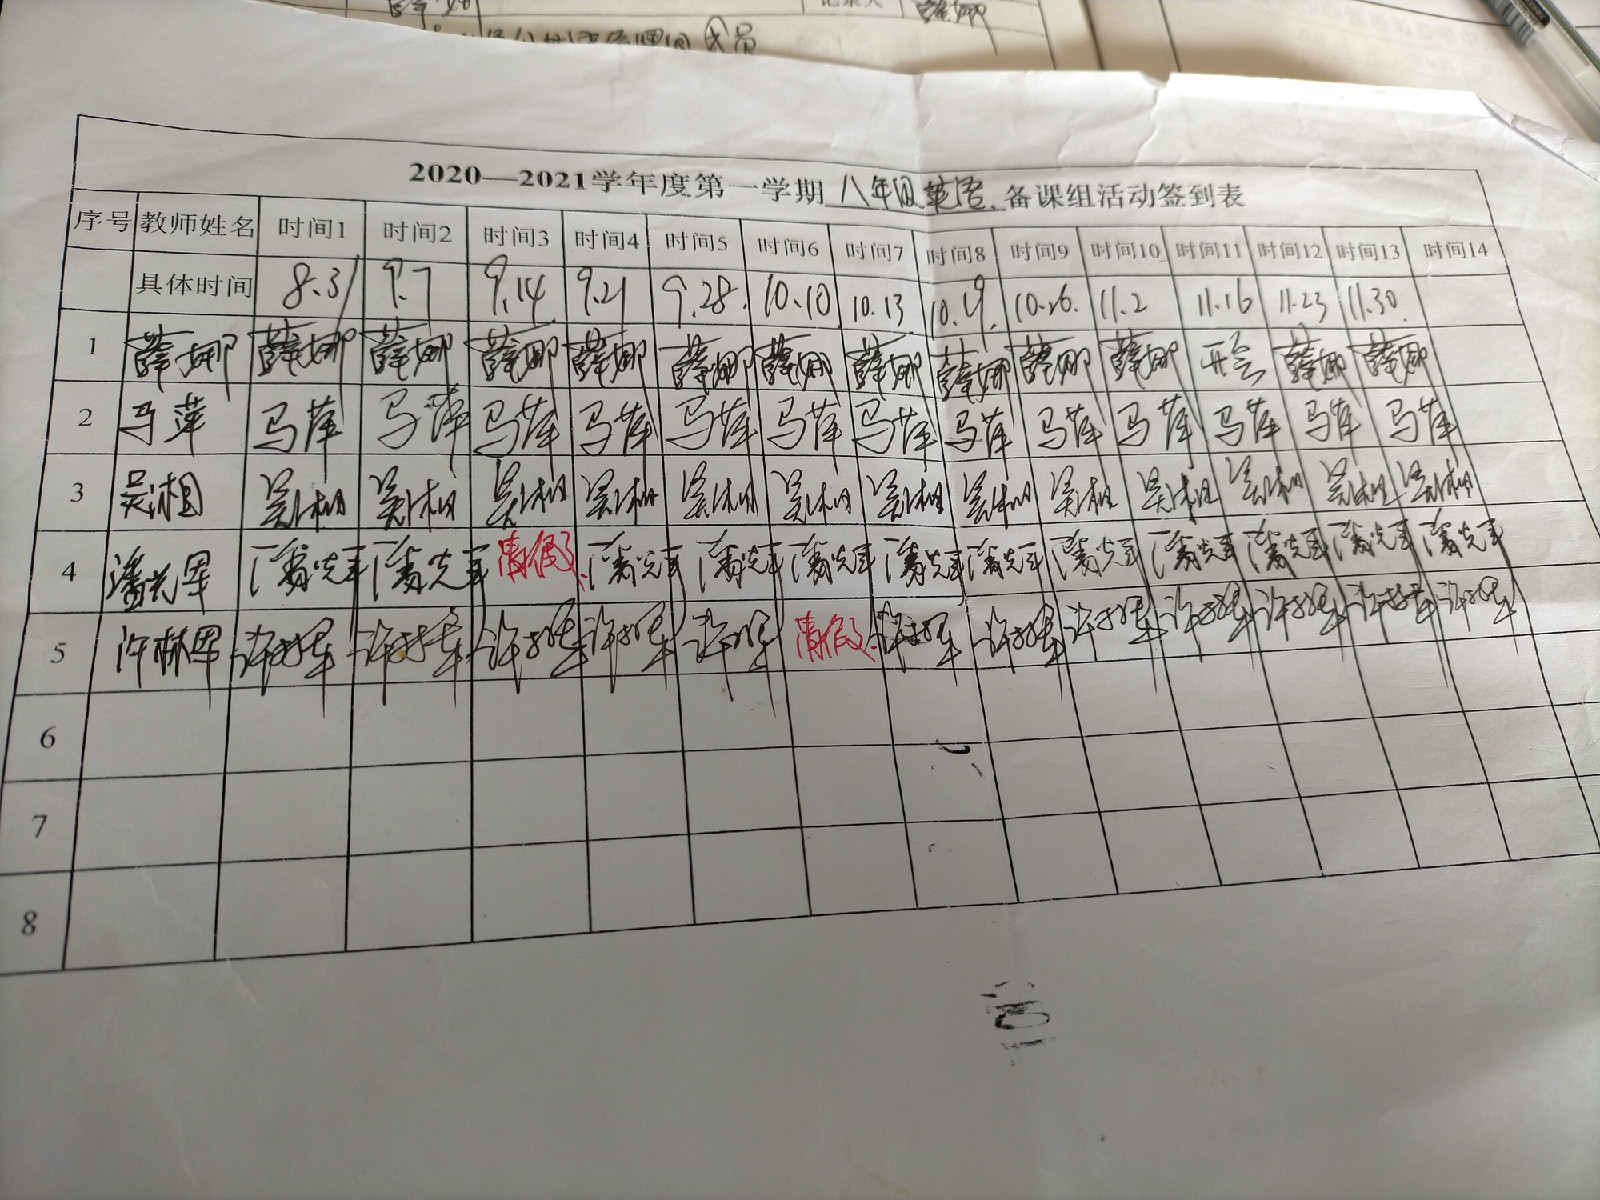 薛娜 记录人 薛娜
时间 成员
2020—2021学年度第一学期 八年级英语 备课组活动签到表
序号 教师姓名 时间1 时间2 时间3 时间4 时间5 时间6 时间7 时间8 时间9 时间10 时间11 时间12 时间13 时间14
具体时间 8.31 9.7 9.14 9.21 9.28 10.10 10.13 10.19 10.26 11.2 11.16 11.23 11.30
1 薛娜 薛娜 薛娜 薛娜 薛娜 薛娜 薛娜 薛娜 薛娜 薛娜 薛娜 开会 薛娜 薛娜
2 马萍 马萍 马萍 马萍 马萍 马萍 马萍 马萍 马萍 马萍 马萍 马萍 马萍 马萍
3 吴湘 吴湘 吴湘 吴湘 吴湘 吴湘 吴湘 吴湘 吴湘 吴湘 吴湘 吴湘 吴湘 吴湘
4 潘先军 潘先军 潘先军 请假 潘先军 潘先军 潘先军 潘先军 潘先军 潘先军 潘先军 潘先军 潘先军 潘先军
5 许林军 许林军 许林军 许林军 许林军 许林军 请假 许林军 许林军 许林军 许林军 许林军 许林军 许林军
6
7
8